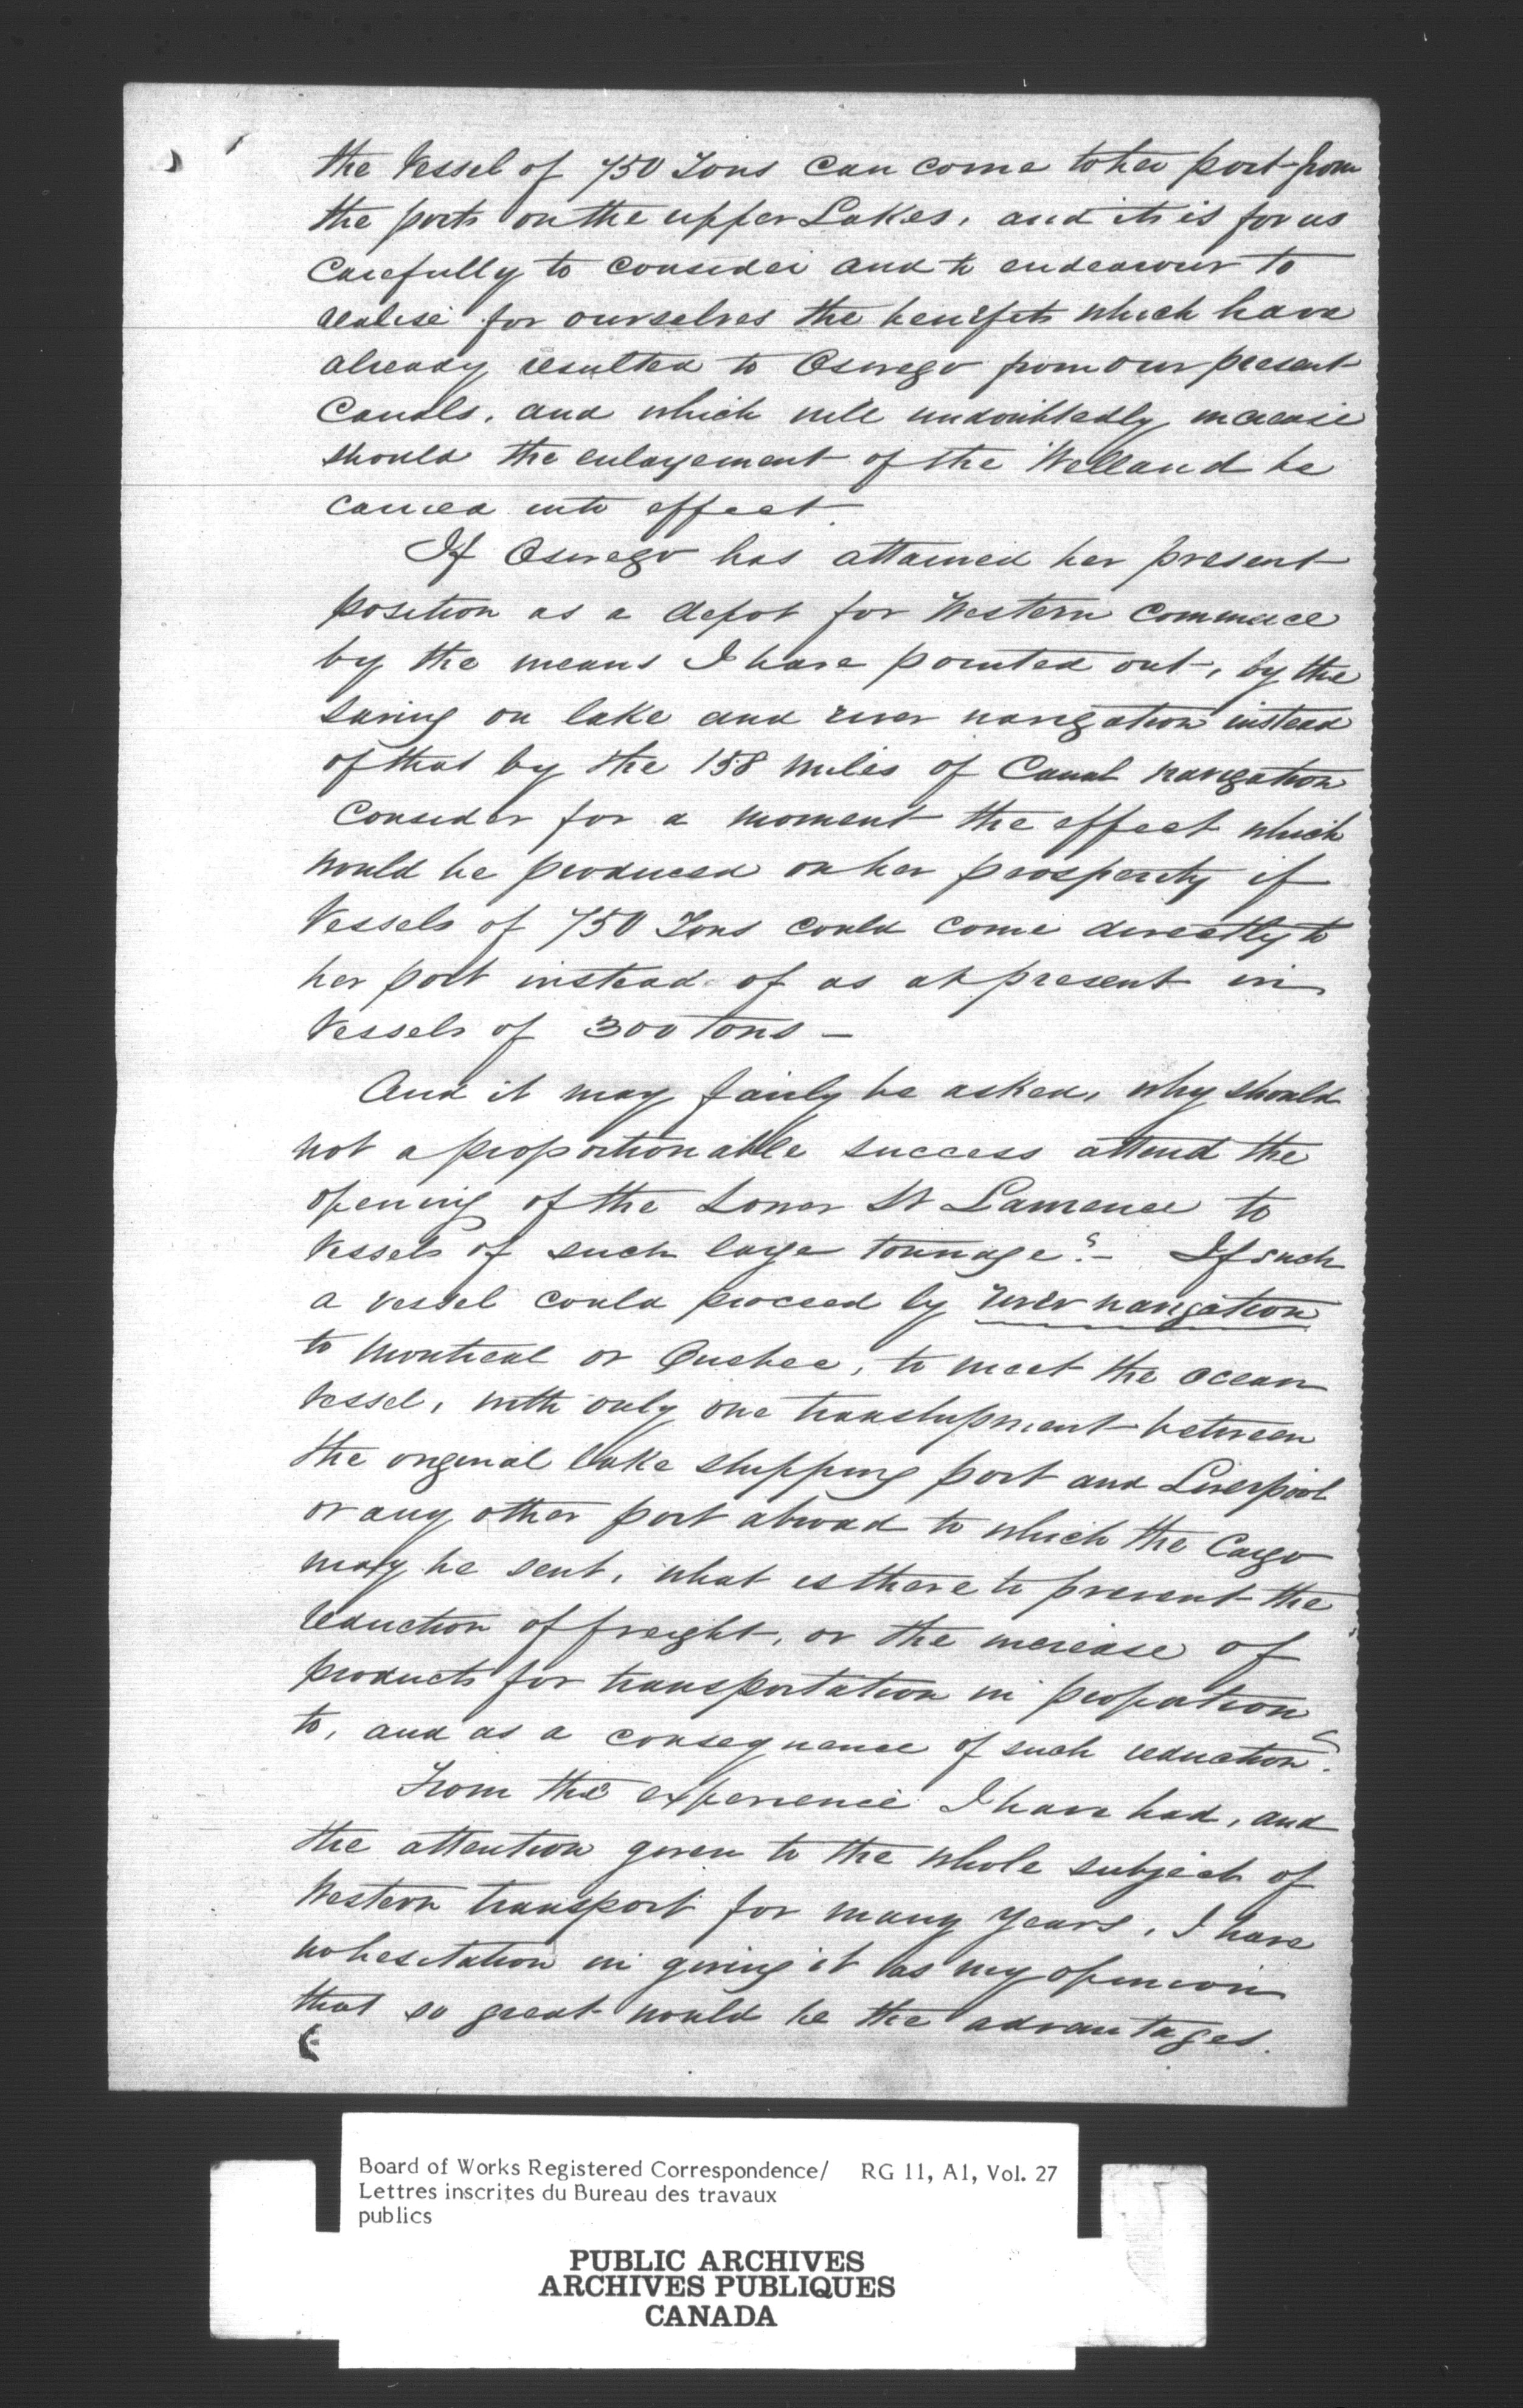 the Vessel of 750 Tons can come to her port from
the ports on the upper Lakes, and it is for us
Carefully to consider and to endeavour to
realise for ourselves the benefits which have
already resulted to Oswego from our present
Canals, and which will undoubtedly increase
should the enlargement of the Welland be
carried into effect.
If Oswego has attained her present
position as a depot for Western Commerce
by the means I have pointed out, by the
saving on lake and river navigation instead
of that by the 158 miles of Canal navigation
Consider for a moment the effect which
would be produced on her prosperity if
Vessels of 750 Tons could come directly to
her port instead of as at present in
Vessels of 300 tons —
And it may fairly be asked, why should
not a proportionable success attend the
opening of the Lower St Lawrence to
Vessels of such large tonnage? — If such
a vessel could proceed by river navigation
to Montreal or Quebec, to meet the ocean
vessel, with only one transhipment between
the original lake shipping port and Liverpool
or any other port abroad to which the Cargo
may be sent, what is there to prevent the
reduction of freight, or the increase of
products for transportation in proportion
to, and as a consequence of such reduction?
From the experience I have had, and
the attention given to the whole subject of
Western transport for many years, I have
no hesitation in giving it as my opinion
that so great would be the advantages.
Board of Works Registered Correspondence/ RG 11, A1, Vol. 27
Lettres inscrites du Bureau des travaux
publics
PUBLIC ARCHIVES
ARCHIVES PUBLIQUES
CANADA